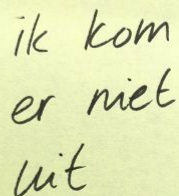 ik kom
er niet
uit